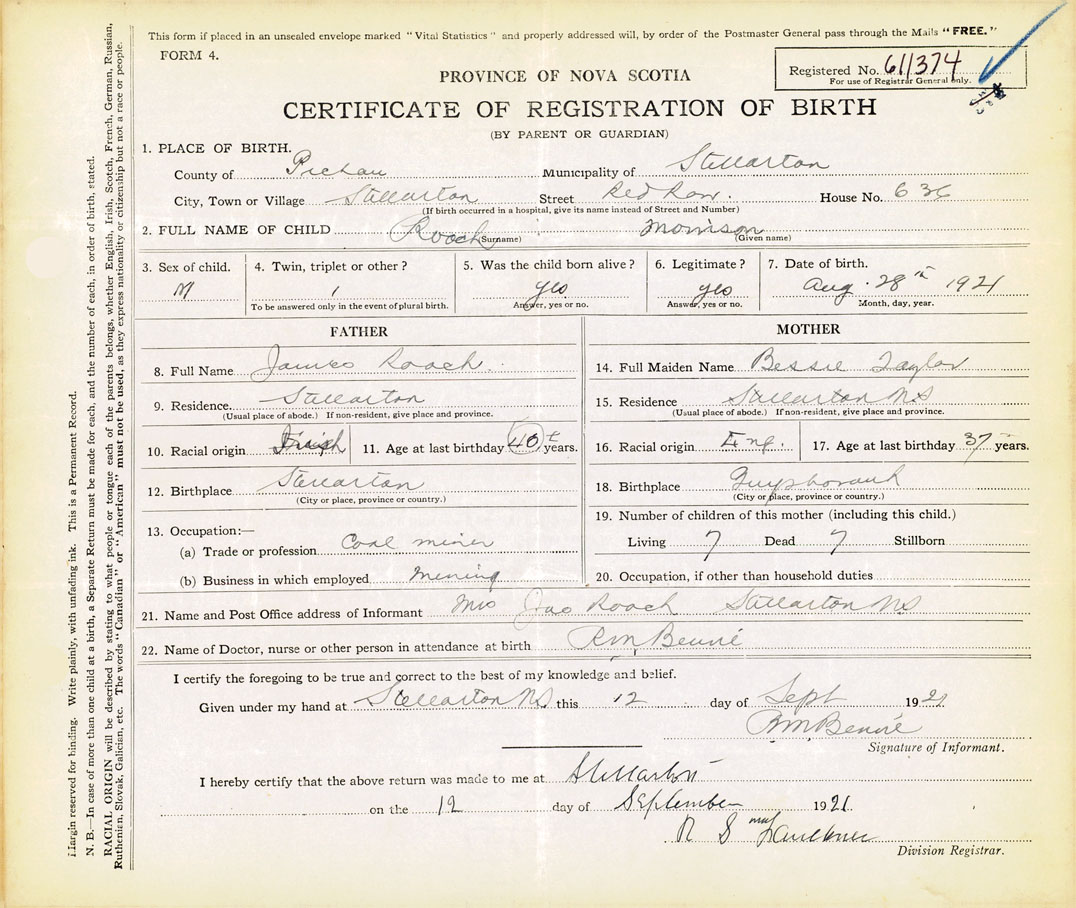 This form if placed in an unsealed envelope marked "Vital Statistics" and properly addressed will, by order of the Postmaster General pass through the Mails "FREE."
FORM 4.
Registered No. 611374
For use of Registrar General only.
PROVINCE OF NOVA SCOTIA
CERTIFICATE OF REGISTRATION OF BIRTH
(BY PARENT OR GUARDIAN)
1. PLACE OF BIRTH.
County of Pictou Municipality of Stellarton
City, Town or Village Stellarton Street Red Row. House No. 636
(If birth occurred in a hospital, give its name instead of Street and Number)
2. FULL NAME OF CHILD Roach Morrison
(Surname) (Given name)
3. Sex of child. 4. Twin, triplet or other? 5. Was the child born alive? 6. Legitimate? 7. Date of birth.
M 1 yes yes Aug. 28th 1921
To be answered only in the event of plural birth. Answer, yes or no. Answer, yes or no. Month, day, year.
FATHER
8. Full Name James Roach
9. Residence. Stellarton
(Usual place of abode.) If non-resident, give place and province.
10. Racial origin Irish 11. Age at last birthday 40 years.
12. Birthplace Stellarton
(City or place, province or country.)
13. Occupation:—
(a) Trade or profession Coal miner
(b) Business in which employed mining
MOTHER
14. Full Maiden Name Bessie Taylor
15. Residence Stellarton NS
(Usual place of abode.) If non-resident, give place and province.
16. Racial origin Eng. 17. Age at last birthday 37 years.
18. Birthplace
(City or place, province or country.)
19. Number of children of this mother (including this child.)
Living 7 Dead 7 Stillborn
20. Occupation, if other than household duties
21. Name and Post Office address of Informant Mrs Jas Roach Stellarton NS
22. Name of Doctor, nurse or other person in attendance at birth RM Benvie
I certify the foregoing to be true and correct to the best of my knowledge and belief.
Given under my hand at Stellarton NS this 12 day of Sept 1921
RM Benvie
Signature of Informant.
I hereby certify that the above return was made to me at Stellarton
on the 12 day of September 1921.
R S Faulkner
Division Registrar.
Margin reserved for binding. Write plainly, with unfading ink. This is a Permanent Record.
N. B.—In case of more than one child at a birth, a Separate Return must be made for each, and the number of each, in order of birth, stated.
RACIAL ORIGIN will be described by stating to what people or tongue each of the parents belongs, whether English, Irish, Scotch, French, German, Russian,
Ruthenian, Slovak, Galician, etc. The words "Canadian" or "American" must not be used, as they express nationality or citizenship but not a race or people.